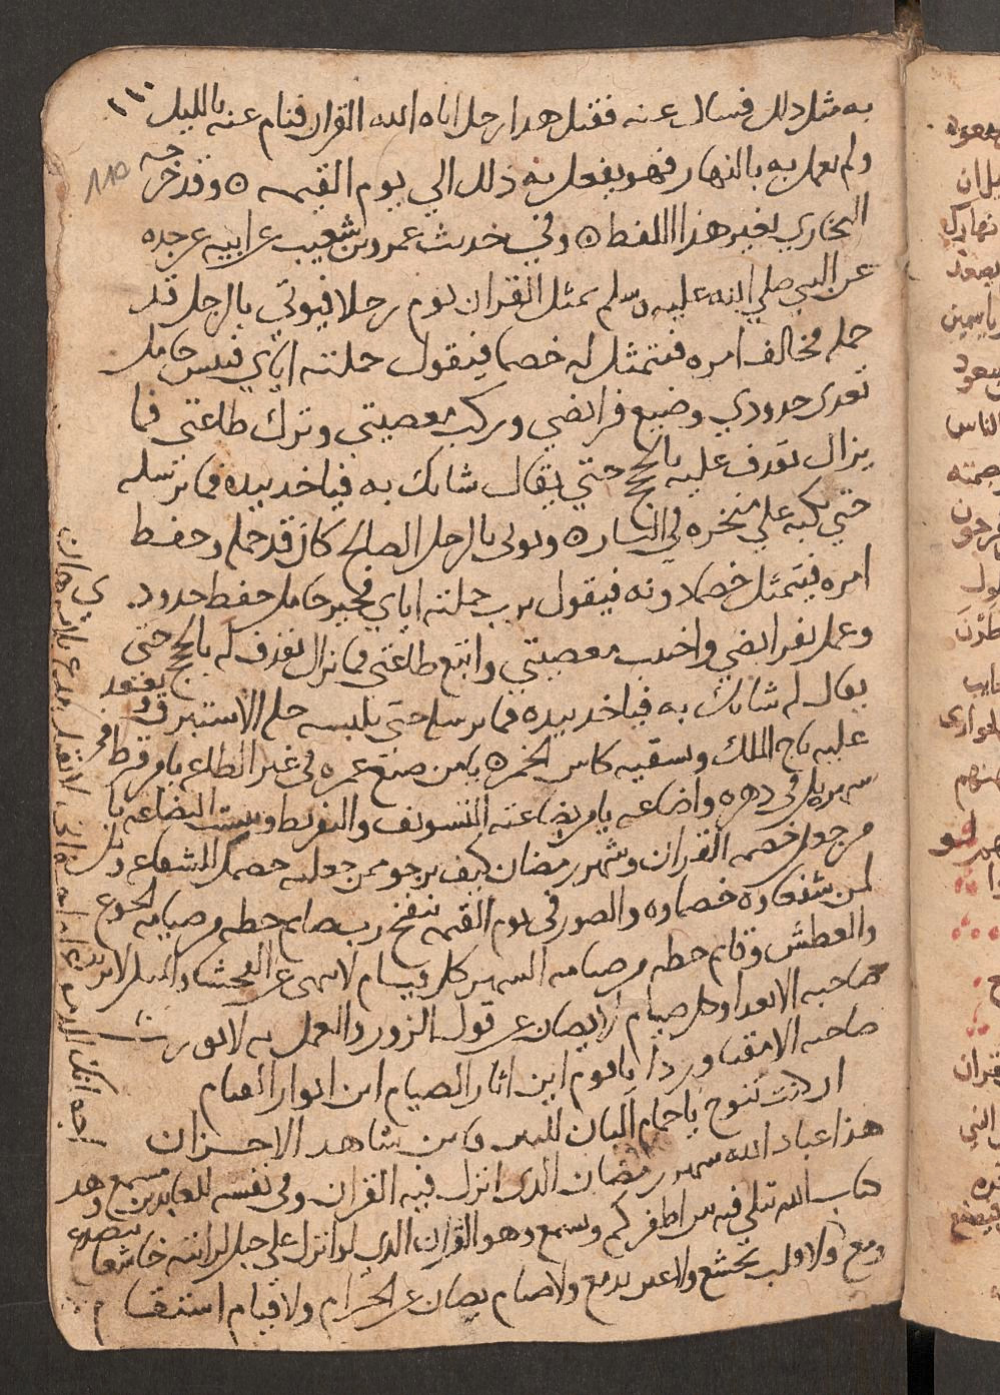 ١١٠
به مثل ذلك فسال عنه فقيل هدا رجل اتاه الله القران فنام عنه بالليل
ولم يعمل به بالنهار فهو يفعل به ذلك الي يوم القيمه ٥ وقد خرجه
البخاري بغير هذا اللفظ ٥ وفي حديث عمرو بن شعيب عن ابيه عن جده
عن النبي صلي الله عليه وسلم يمثل القران يوم رجلا فيوتي بالرجل قد
حمله فخالف امره فيتمثل له خصما فيقول حملته اياي فبيس حامل
تعدي حدودي وضيع فرايضي وركب معصيتي وترك طاعتي فما
يزال يقدف عليه بالحجج حتي يقال شانك به فياخد بيده فما يرسله
حتي يكبه علي منخره في النار ٥ ويوتى بالرجل الصالح كان قد حمله وحفظ
امره فيتمثل خصما دونه فيقول يرب حملته اياي فخير حامل حفظ حدودي
وعمل بفرايضي واجتنب معصيتي واتبع طاعتي فما يزال يقذف له بالحجج حتي
يقال له شانك به فياخد بيده فما يرسله حتى يلبسه حلة الاستبرق ويعقد
عليه تاج الملك ويسقيه كاس الخمر ٥ يا من ضيع عمره في غير الطاعه يا من فرط في
شهره بل في دهره واضاعه يا من بضاعته التسويف والتفريط وبيست البضاعه يا
من جعل خصمه القران وشهر رمضان كيف يرجو ممن جعلته خصمك الشفاعه ويل
لمن شفعاوه خصماوه والصور في يوم القيمه ينفخ رب صايم حظه من صيامه الجوع
والعطش وقايم حظه من قيامه السهر كل قيام لا ينهى عن الفحشاء والمنكر لا يزيد
صاحبه الا بعدا وكل صيام لا يصان عن قول الزور والعمل به لا يورث
صاحبه الا مقتا وردا يا قوم اين اثار الصيام اين انوار القيام
ان كنت تنوح يا حمام البان للبين فاين شاهد الاحزان
هذا عباد الله شهر رمضان الذى انزل فيه القران وفى بقيته للعابدين مستمتع وهدا
كتاب الله يتلى فيه بين اظهركم ويسمع وهو القران الذى لو انزل على جبل لرايته خاشعا يتصدع
ومع ولا قلب يخشع ولا عين تدمع ولا صيام يصان عن الحرام ولا قيام استقام